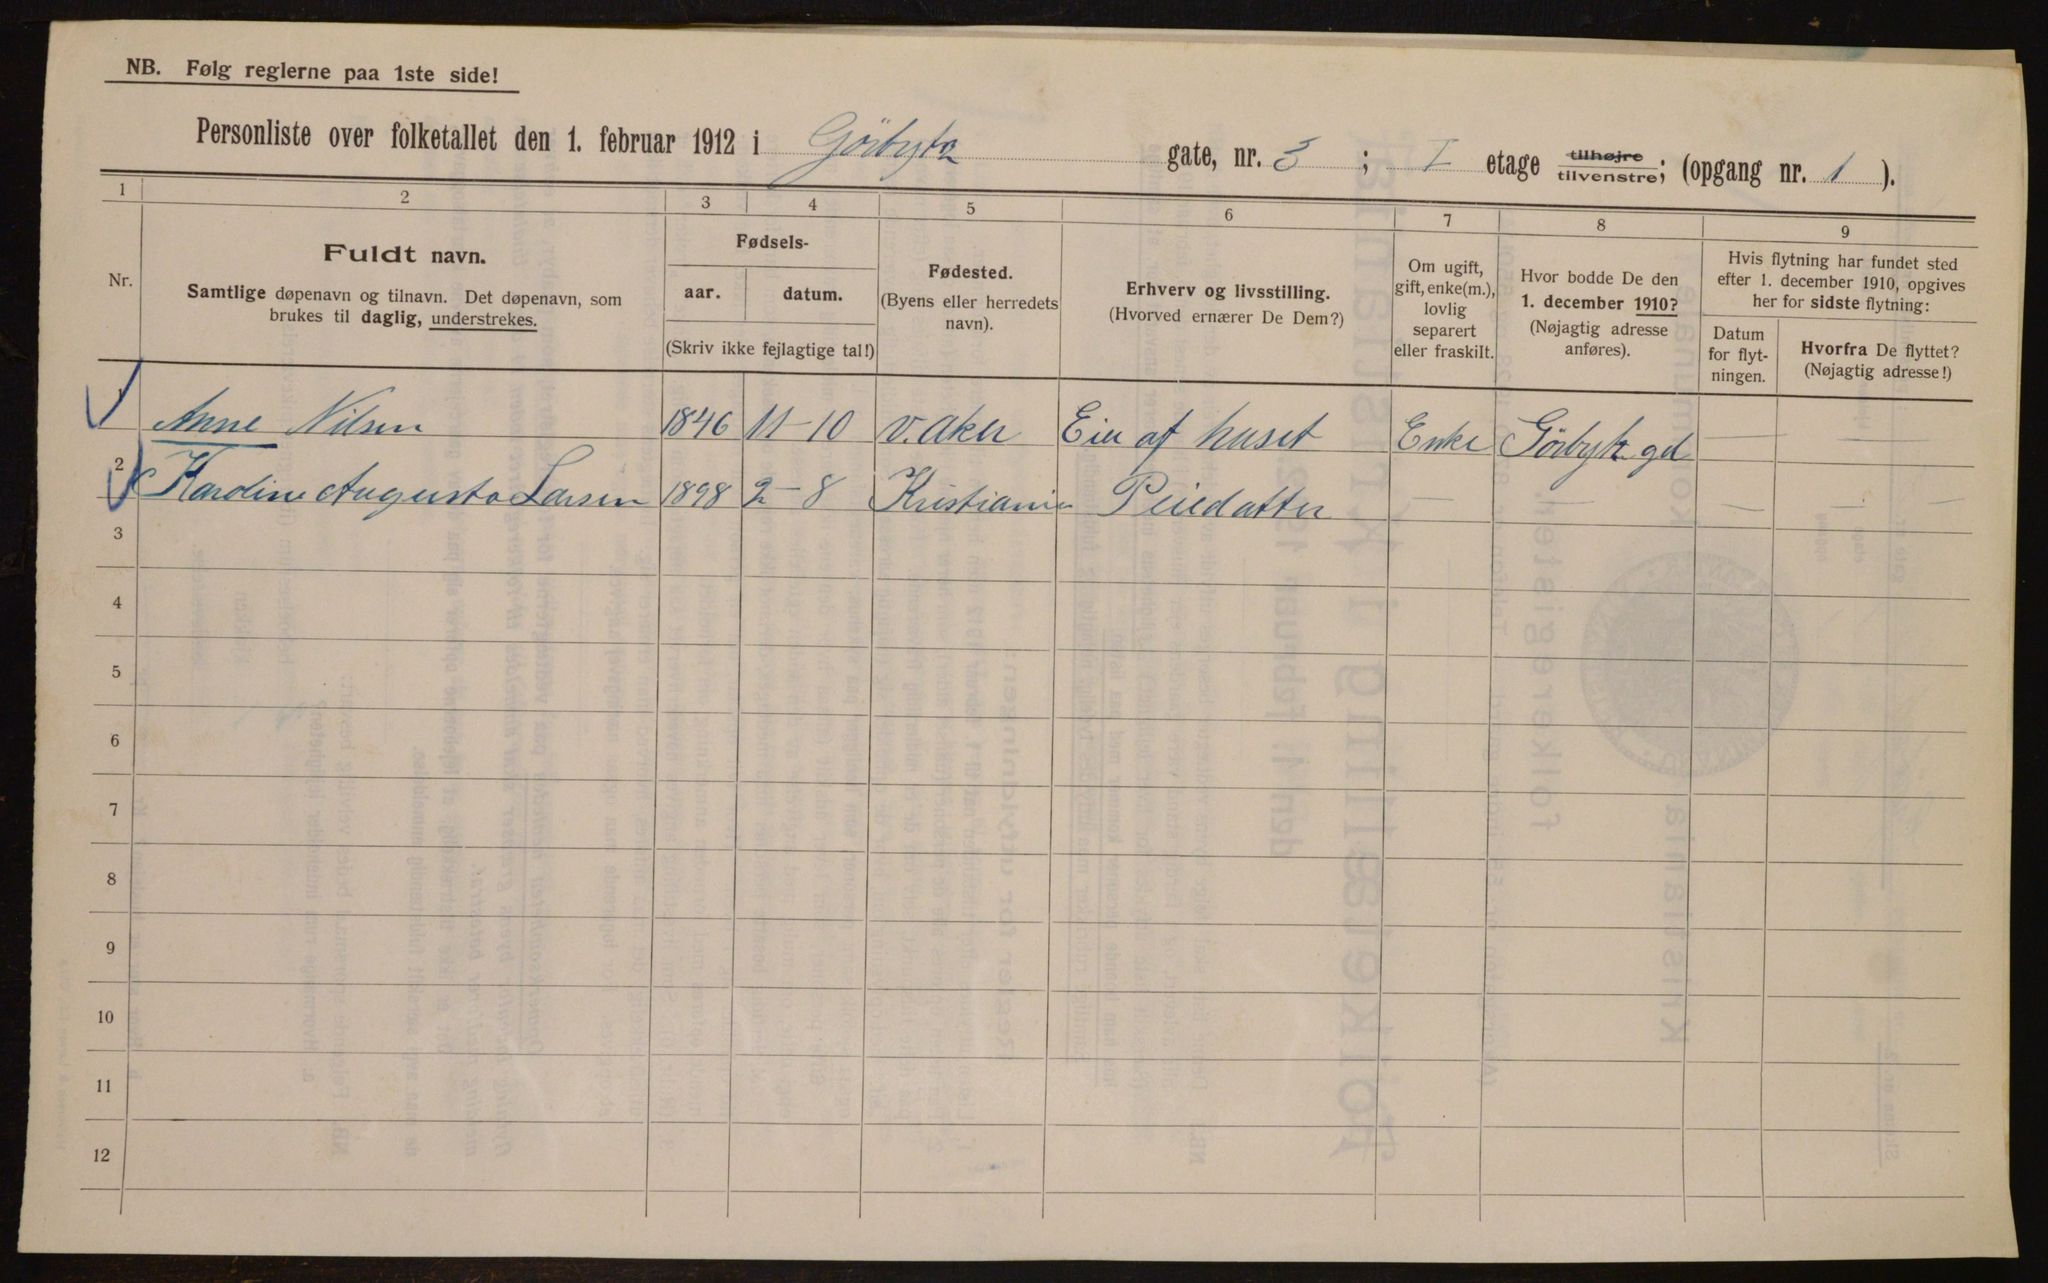 NB. Følg reglerne paa 1ste side!
Personliste over folketallet den 1. februar 1912 i Gørbytz gate, nr. 3 ; I etage tilhøjre tilvenstre; (opgang nr. 1 ).
1 2 3 4 5 6 7 8 9
Nr.
Fuldt navn.
Samtlige døpenavn og tilnavn. Det døpenavn, som
brukes til daglig, understrekes.
Fødsels-
aar. datum.
(Skriv ikke fejlagtige tal!)
Fødested.
(Byens eller herredets
navn).
Erhverv og livsstilling.
(Hvorved ernærer De Dem?)
Om ugift,
gift, enke(m.),
lovlig
separert
eller fraskilt.
Hvor bodde De den
1. december 1910?
(Nøjagtig adresse
anføres).
Hvis flytning har fundet sted
efter 1. december 1910, opgives
her for sidste flytning:
Datum
for flyt-
ningen.
Hvorfra De flyttet?
(Nøjagtig adresse!)
1 Anne Nilsen 1846 11-10 V. Aker Eier af huset Enke Gørbytz gd — —
2 Karoline Augusta Larsen 1898 2-8 Kristiania Pleiedatter — — — —
3
4
5
6
7
8
9
10
11
12